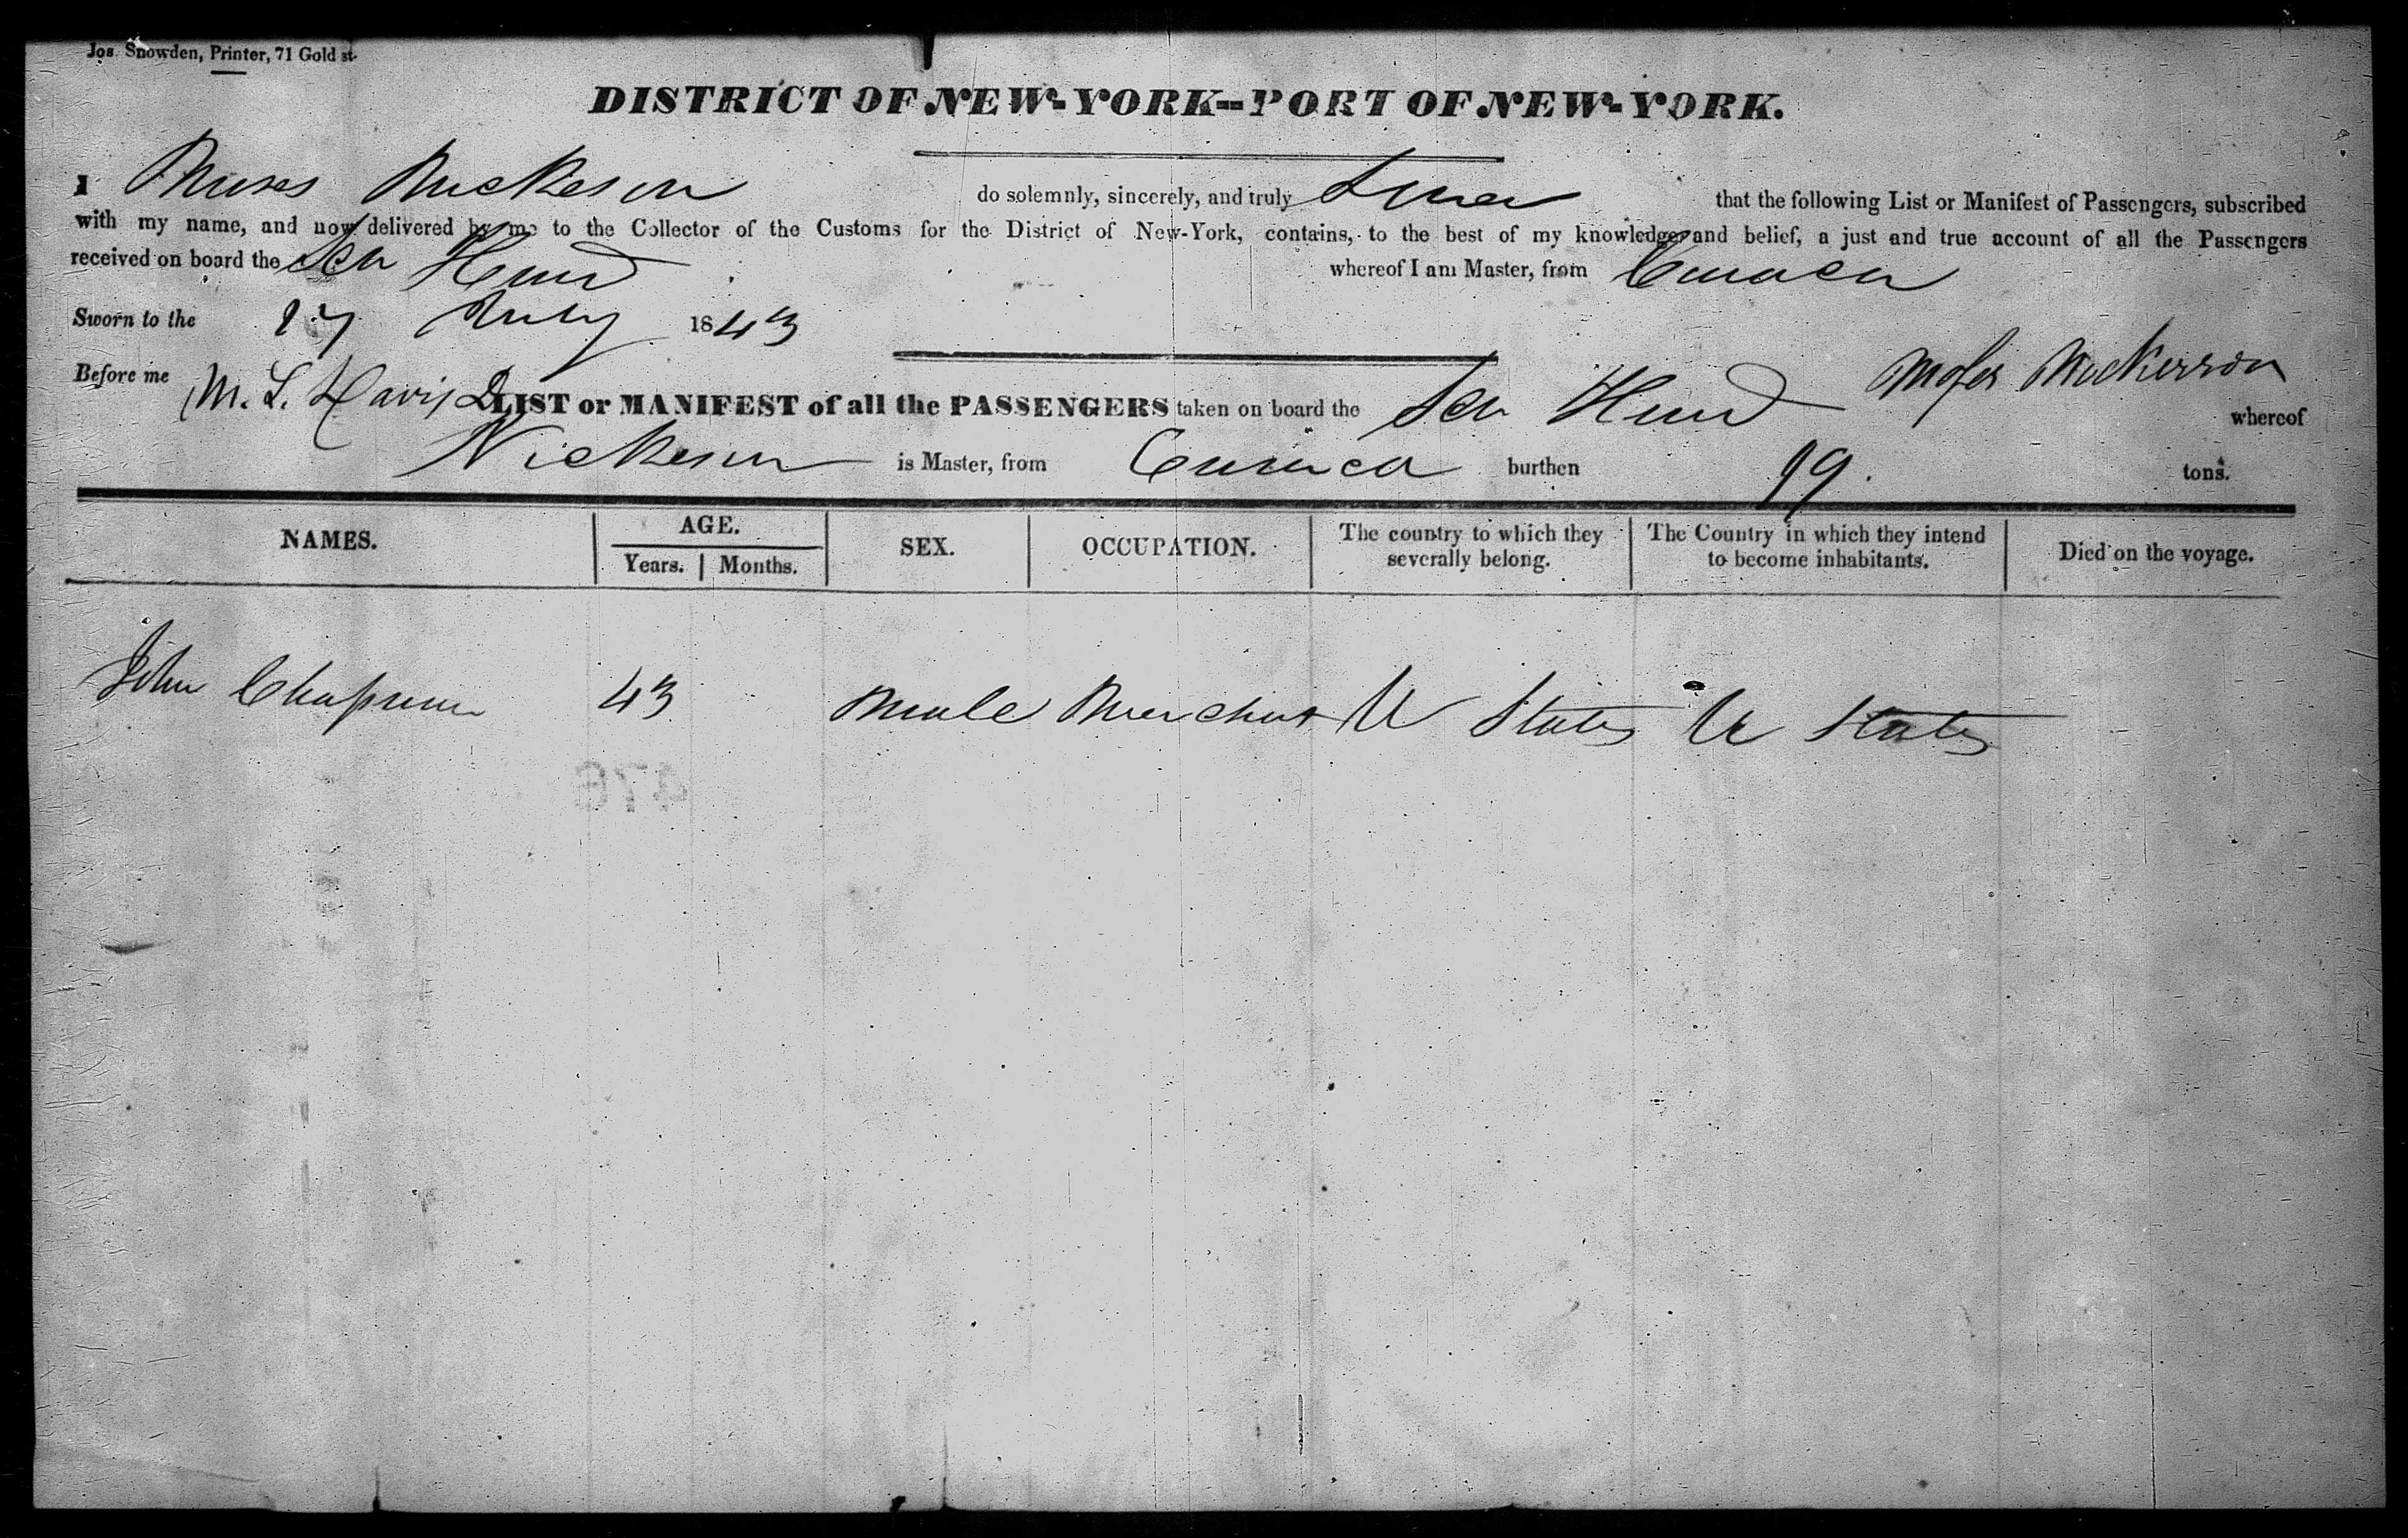 Jos. Snowden, Printer, 71 Gold st.
DISTRICT OF NEW-YORK--PORT OF NEW-YORK.
I Moses Nickerson do solemnly, sincerely, and truly Swear that the following List or Manifest of Passengers, subscribed
with my name, and now delivered by me to the Collector of the Customs for the District of New-York, contains, to the best of my knowledge and belief, a just and true account of all the Passengers
received on board the Sch whereof I am Master, from Curacoa
Sworn to the 17 July 1843
Before me M. L. Davis Moses Nickerson
LIST or MANIFEST of all the PASSENGERS taken on board the Sch whereof
Nickerson is Master, from Curacoa burthen 99. tons.
NAMES. AGE. Years. Months. SEX. OCCUPATION. The country to which they severally belong. The Country in which they intend to become inhabitants. Died on the voyage.
John Chapman 43 Male Merchant U States U States
476